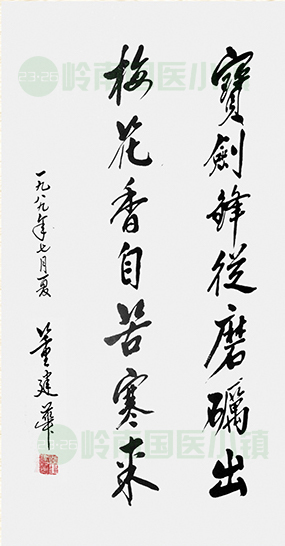 寶劍鋒從磨礪出
梅花香自苦寒來
一九八九年七月夏
董建華
23·26 岭南国医小镇
23·26 岭南国医小镇